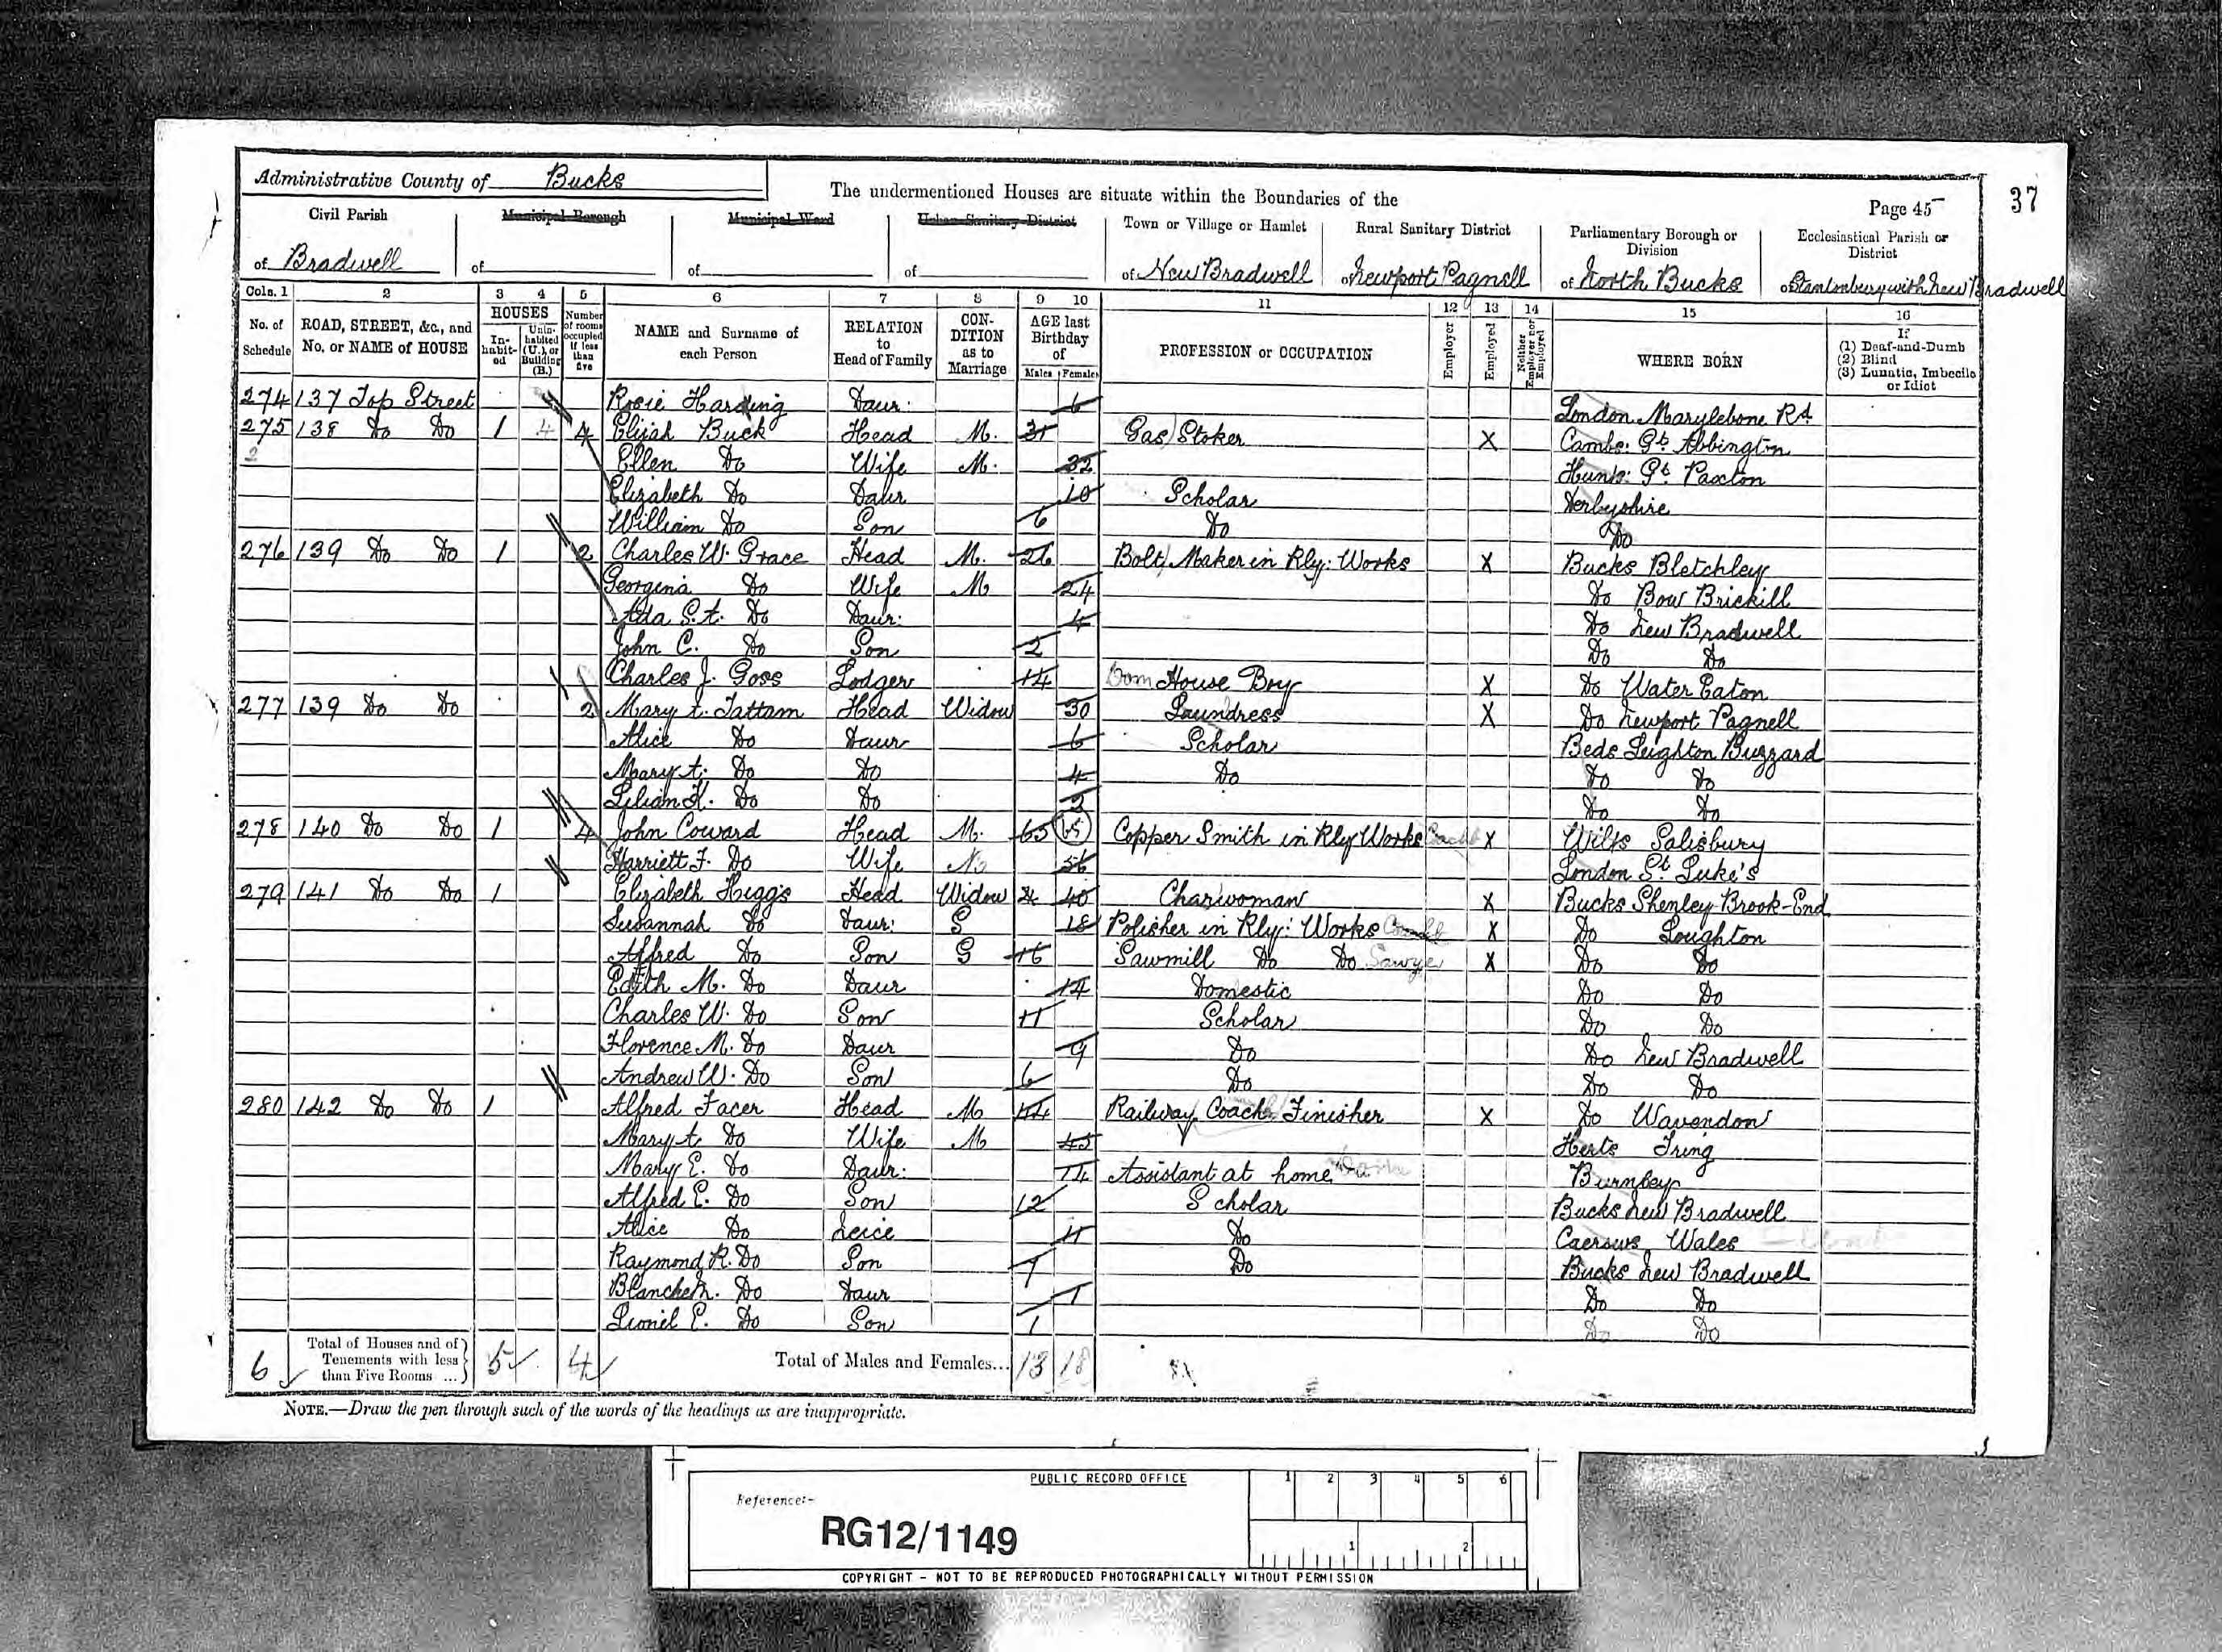 Administrative County of Bucks
The undermentioned Houses are situate within the Boundaries of the
Page 45
37
Civil Parish of Bradwell
Municipal Borough of
Municipal Ward of
Urban Sanitary District of
Town or Village or Hamlet of New Bradwell
Rural Sanitary District of Newport Pagnell
Parliamentary Borough or Division of North Bucks
Ecclesiastical Parish or District of Stantonbury with New Bradwell
Cols. 1 2 3 4 5 6 7 8 9 10 11 12 13 14 15 16
No. of Schedule
ROAD, STREET, &c., and No. or NAME of HOUSE
HOUSES
In-habit-ed
Unin-habited (U.), or Building (B.)
Number of rooms occupied if less than five
NAME and Surname of each Person
RELATION to Head of Family
CON-DITION as to Marriage
AGE last Birthday of
Males Females
PROFESSION or OCCUPATION
Employer
Employed
Neither Employer nor Employed
WHERE BORN
If (1) Deaf-and-Dumb (2) Blind (3) Lunatic, Imbecile or Idiot
274 137 Top Street Rosie Harding Daur: 6 London Marylebone Rd.
275 138 Do Do 1 4 Elijah Buck Head M. 31 Gas Stoker X Cambs: Gt. Abbington
Ellen Do Wife M. 32 Hunts: Gt. Paxton
Elizabeth Do Daur 10 Scholar Derbyshire
William Do Son 6 Do Do
276 139 Do Do 1 2 Charles W. Grace Head M. 26 Bolt Maker in Rly: Works X Bucks Bletchley
Georgina Do Wife M 24 Do Bow Brickill
Ada S. A. Do Daur: 4 Do New Bradwell
John C. Do Son 2 Do Do
Charles J. Goss Lodger 14 Dom House Boy X Do Water Eaton
277 139 Do Do 2 Mary A. Tattam Head Widow 30 Laundress X Do Newport Pagnell
Alice Do Daur 6 Scholar Beds Leighton Buzzard
Mary A. Do Do 4 Do Do Do
Lilian H. Do Do 2 Do Do
278 140 Do Do 1 4 John Coward Head M. 65 65 Copper Smith in Rly Works X Wilts Salisbury
Harriett F. Do Wife 56 London St. Luke's
279 141 Do Do 1 Elizabeth Higgs Head Widow 40 Charwoman X Bucks Shenley Brook-End
Susannah Do Daur: S 18 Polisher in Rly: Works X Do Loughton
Alfred Do Son S 16 Sawmill Do Do Sawyer X Do Do
Edith M. Do Daur 14 Domestic Do Do
Charles W. Do Son 11 Scholar Do Do
Florence M. Do Daur 9 Do Do New Bradwell
Andrew W. Do Son 6 Do Do Do
280 142 Do Do 1 Alfred Facer Head M 44 Railway Coach Finisher X Do Wavendon
Mary A. Do Wife M 45 Herts Tring
Mary E. Do Daur: 14 Assistant at home Burnley
Alfred E. Do Son 12 Scholar Bucks New Bradwell
Alice Do Neice 11 Do Caersws Wales
Raymond R. Do Son 7 Do Bucks New Bradwell
Blanche Do Daur 1 Do Do
Lionel E. Do Son 1 Do Do
6 Total of Houses and of Tenements with less than Five Rooms ... 5 4 Total of Males and Females... 13 18
NOTE.—Draw the pen through such of the words of the headings as are inappropriate.
PUBLIC RECORD OFFICE
1 2 3 4 5 6
Reference:-
RG12/1149
1 2
COPYRIGHT - NOT TO BE REPRODUCED PHOTOGRAPHICALLY WITHOUT PERMISSION